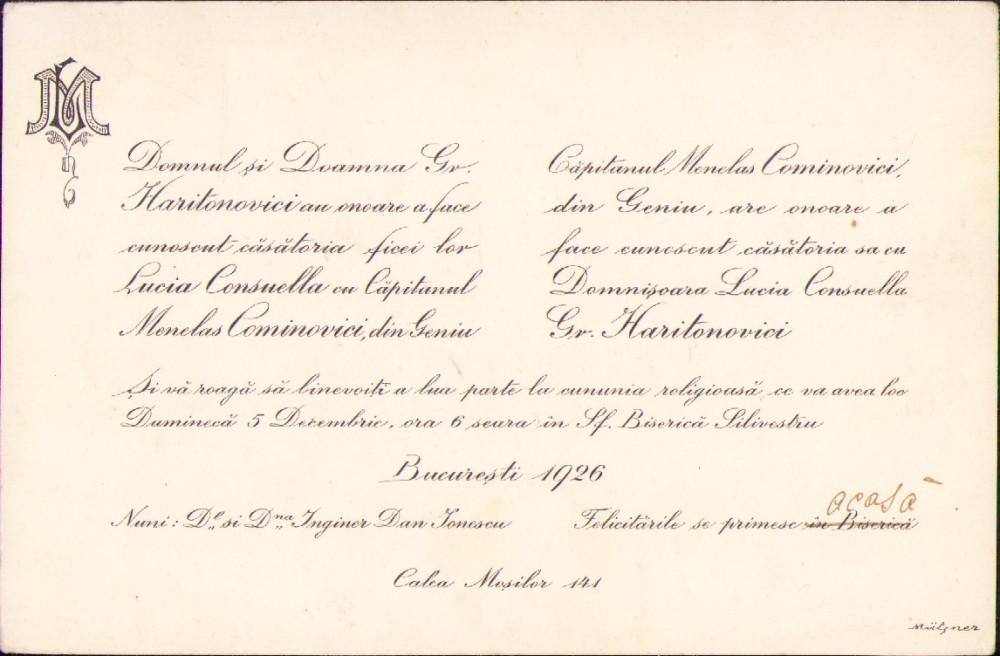 M
Domnul și Doamna Gr.
Haritonovici au onoare a face
cunoscut căsătoria ficei lor
Lucia Consuella cu Căpitanul
Menelas Cominovici, din Geniu
Căpitanul Menelas Cominovici,
din Geniu, are onoare a
face cunoscut căsătoria sa cu
Domnișoara Lucia Consuella
Gr. Haritonovici
Și vă roagă să binevoiți a lua parte la cununia religioasă ce va avea loc
Duminecă 5 Decembrie, ora 6 seara in Sf. Biserică Silivestru
București 1926
Nuni: Dl si Dna Inginer Dan Ionescu
acasă
Felicitările se primesc in Biserică
Calea Moșilor 141